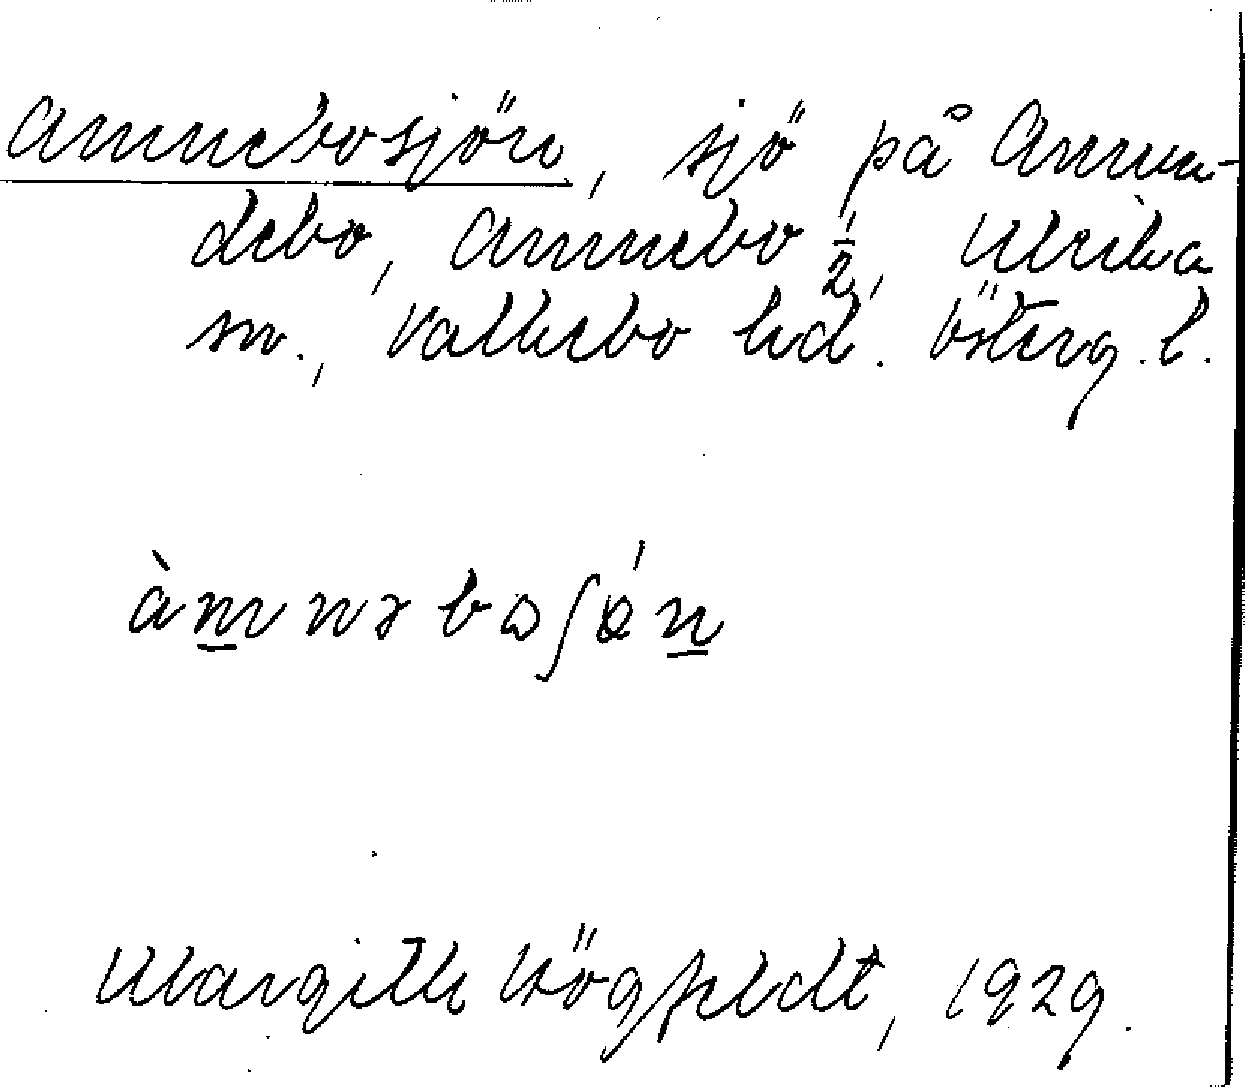 Amnebosjön, sjö på Amun-
debo, Amnebo 1/2, Ulrika
sn., Valkebo hd. Österg. l.
àmnəbaʃǿn
Margith Högfeldt, 1929.